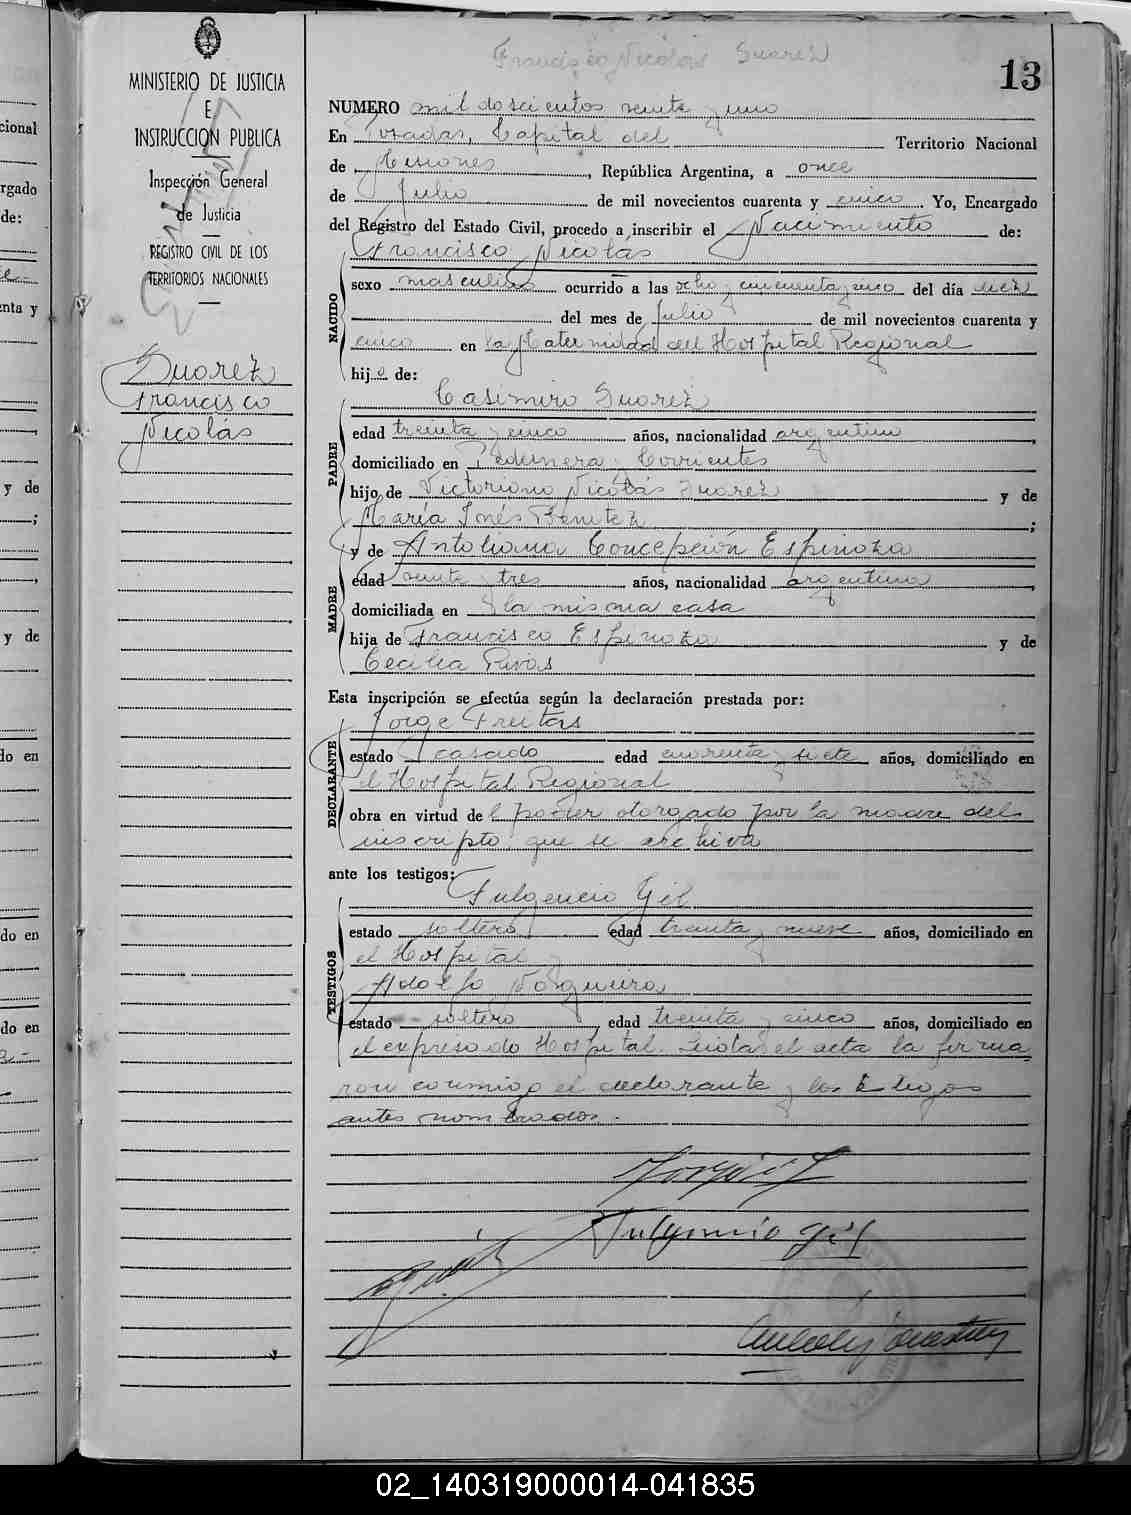 Francisco Nicolas Suarez
13
MINISTERIO DE JUSTICIA
E
INSTRUCCION PUBLICA
Inspección General
de Justicia
REGISTRO CIVIL DE LOS
TERRITORIOS NACIONALES
Suarez
Francisco
Nicolás
NUMERO mil doscientos veinte y uno
En Posadas, Capital del Territorio Nacional
de Misiones, República Argentina, a once
de Julio de mil novecientos cuarenta y cinco. Yo, Encargado
del Registro del Estado Civil, procedo a inscribir el Nacimiento de:
Francisco Nicolás
NACIDO
sexo masculino ocurrido a las ocho y cincuenta y cinco del día diez
del mes de Julio de mil novecientos cuarenta y
cinco en la Maternidad del Hospital Regional
hijo de:
Casimiro Suarez
PADRE
edad treinta y cinco años, nacionalidad argentino,
domiciliado en Pedernera, Corrientes
hijo de Victoriano Nicolás Suarez y de
María Inés Benitez;
y de Antoliana Concepción Espinoza
MADRE
edad veinte y tres años, nacionalidad argentina,
domiciliada en la misma casa
hija de Francisco Espinoza y de
Cecilia Rivas
Esta inscripción se efectúa según la declaración prestada por:
Jorge Freitas
DECLARANTE
estado casado edad cuarenta y siete años, domiciliado en
el Hospital Regional
obra en virtud del poder otorgado por la madre del
inscripto que se archiva
ante los testigos:
Fulgencio Gil
TESTIGOS
estado soltero edad treinta y nueve años, domiciliado en
el Hospital y
Adolfo Nogueira
estado soltero, edad treinta y cinco años, domiciliado en
el expresado Hospital. Leida el acta la firma
ron conmigo el declarante y los testigos
antes nombrados.
Fulgencio Gil
cional
rgado
de:
nta y
y de
;
,
y de
do en
do en
do en
02_140319000014-041835